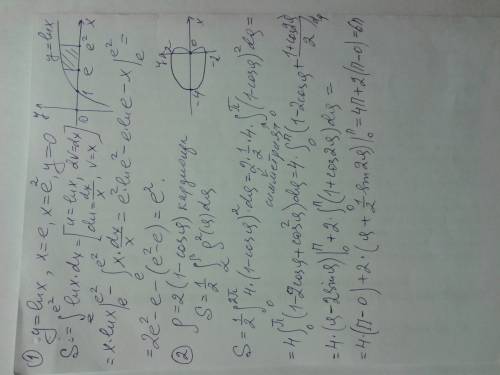 ① y=lnx, x=e, x=e², y=0
S = ∫ₑ^(e²) lnx·dx = [u=lnx, dv=dx; du=dx/x, v=x]
= x·lnx|ₑ^(e²) − ∫ₑ^(e²) x·dx/x = e²·lne² − elne − x|ₑ^(e²) =
= 2e² − e − (e² − e) = e².
y y=lnx
0 1 e e² x
② ρ=2(1−cosφ) кардиоида
S = 1/2 ∫ ρ²(φ)dφ
S = 1/2 ∫₀^(2π) 4·(1−cosφ)²·dφ = 2·1/2·4·∫₀^π (1−cosφ)²dφ =
симметрия
= 4∫₀^π (1−2cosφ+cos²φ)dφ = 4·∫₀^π (1−2cosφ+(1+cos2φ)/2)dφ
= 4·(φ−2sinφ)|₀^π + 2·∫₀^π (1+cos2φ)dφ =
= 4·(π−0) + 2·(φ+1/2 sin2φ)|₀^π = 4π+2(π−0) = 6π
y 2
−4 0 x
−2